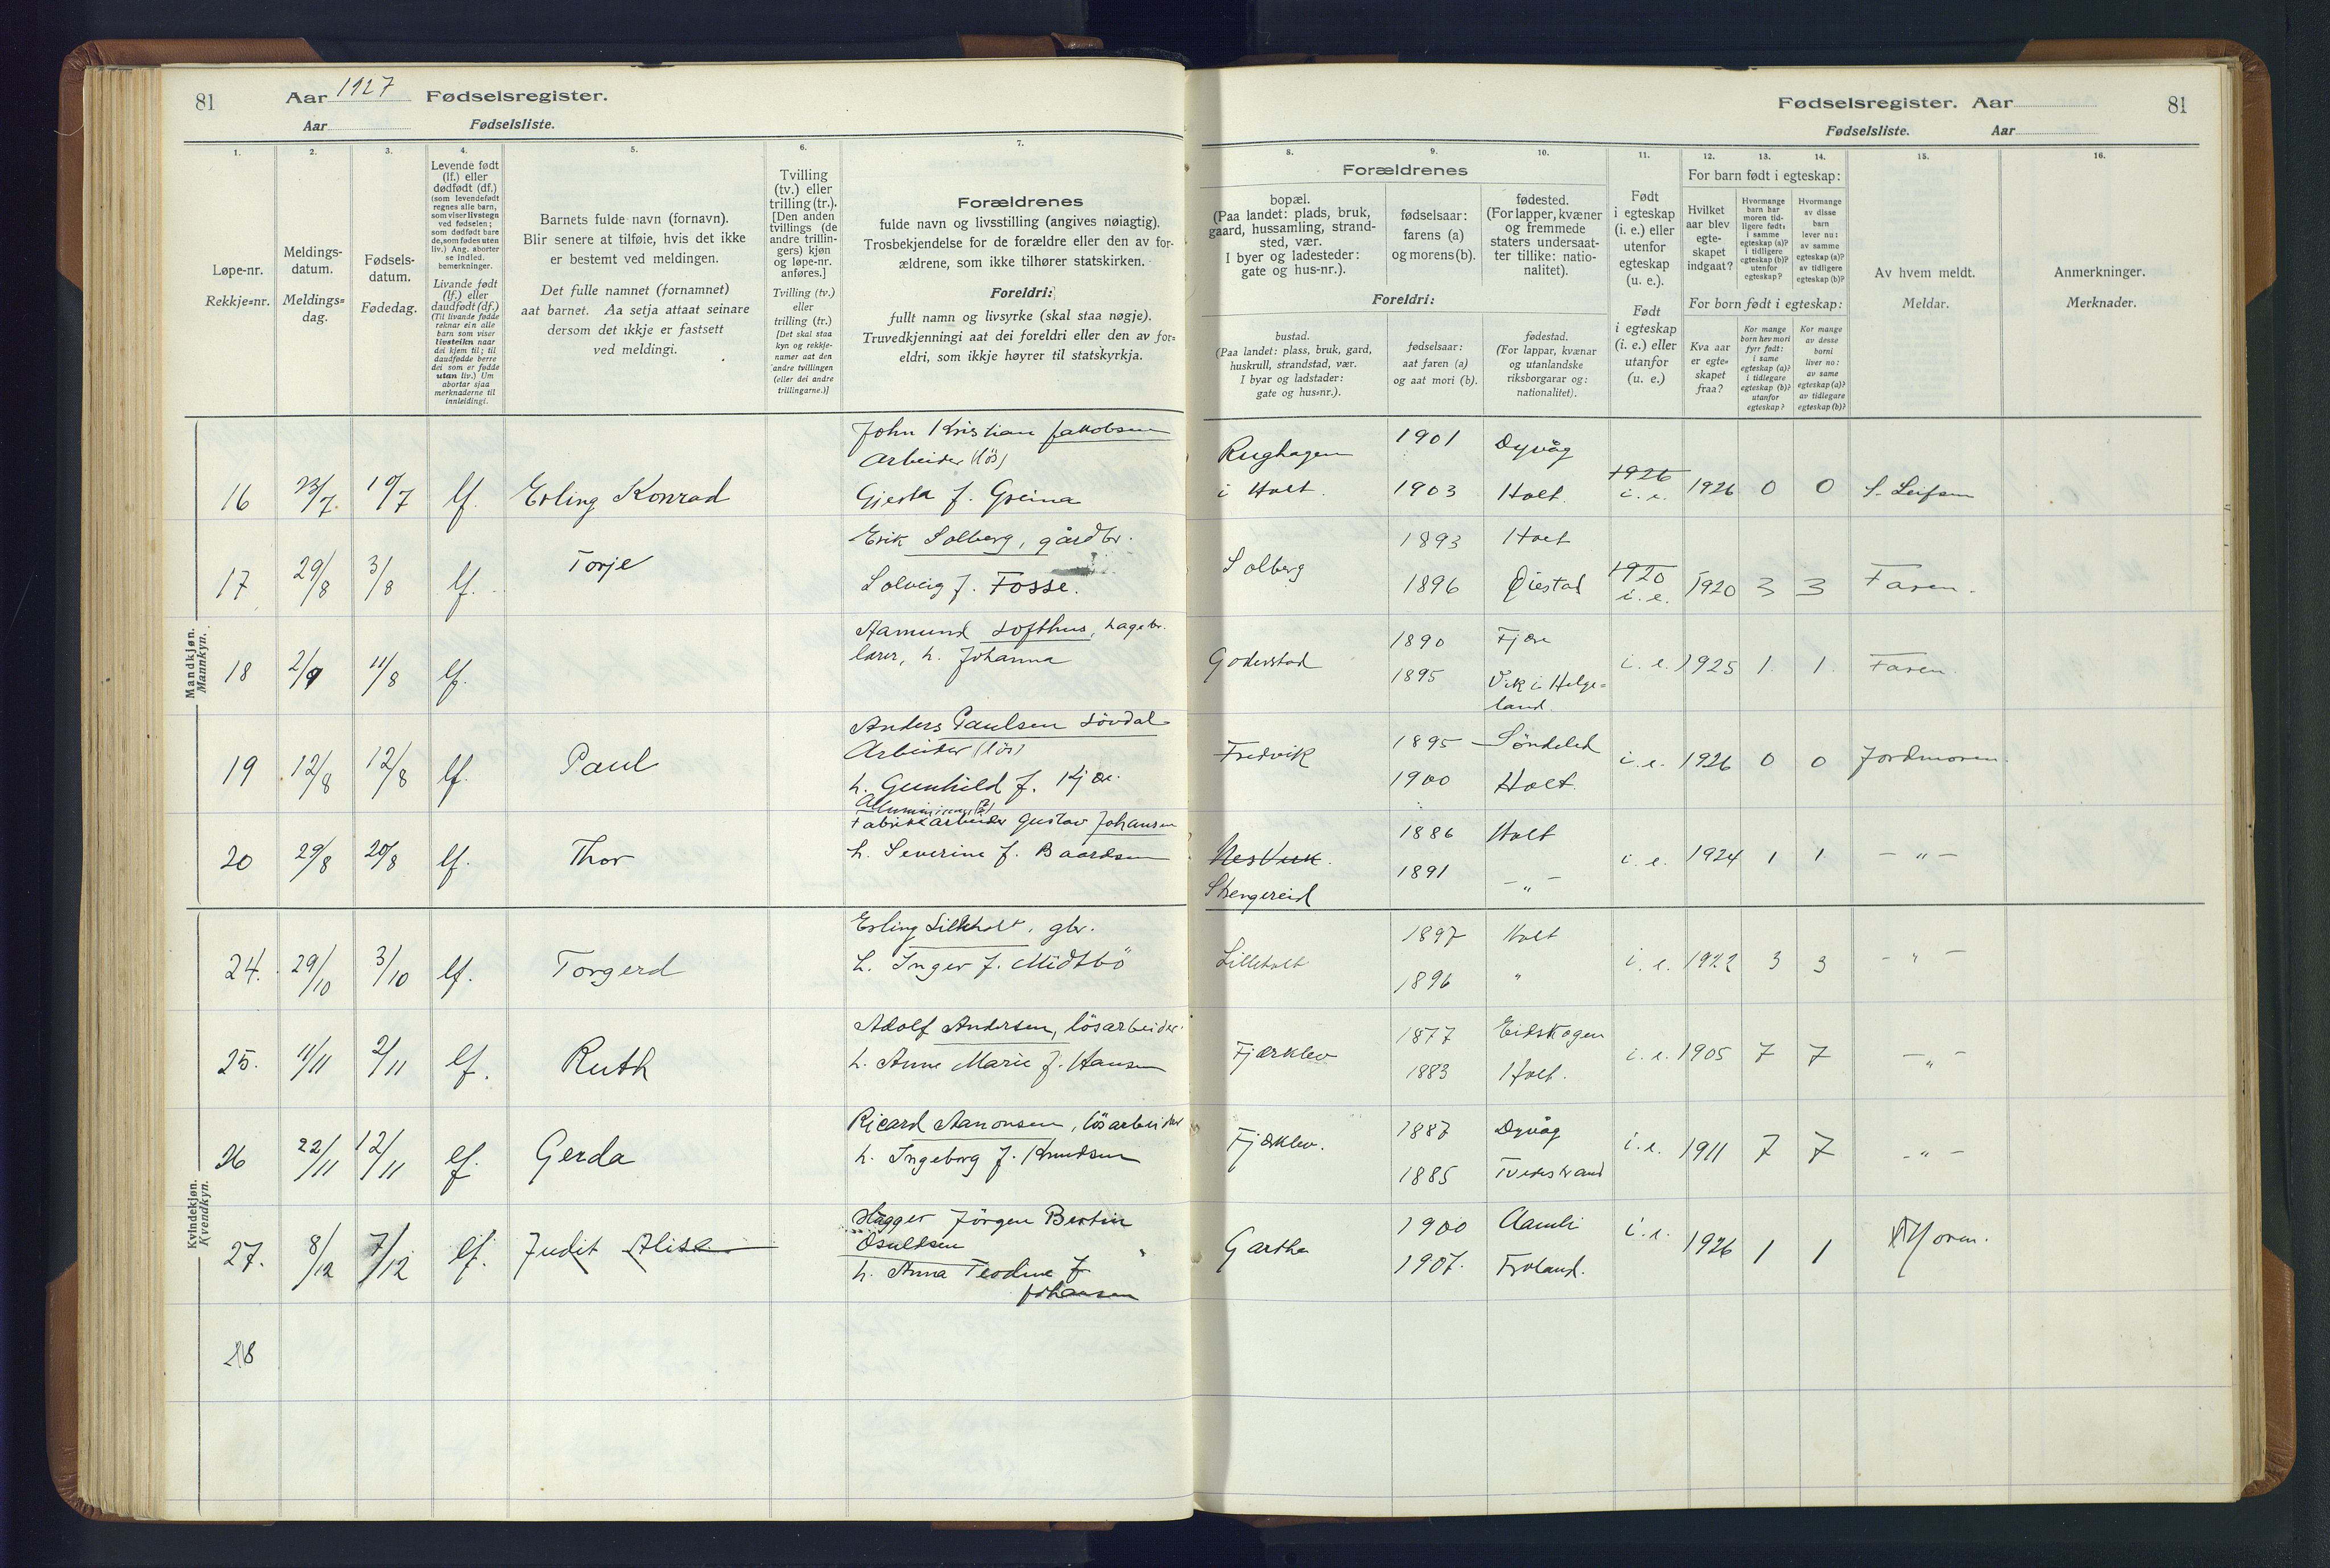 81
Aar 1927 Fødselsregister.
Aar Fødselsliste.
1. 2. 3. 4. 5. 6. 7.
Løpe-nr.
Rekkje=nr.
Meldings-
datum.
Meldings=
dag.
Fødsels-
datum.
Fødedag.
Levende født
(lf.) eller
dødfødt (df.)
(som levendefødt
regnes alle barn,
som viser livstegn
ved fødselen;
som dødfødt bare
de, som fødes uten
liv.) Ang. aborter
se indled.
bemerkninger.
Livande født
(lf.) eller
daudfødt (df.)
(Til livande fødde
reknar ein alle
barn som viser
livsteikn naar
dei kjem til; til
daudfødde berre
dei som er fødde
utan liv.) Um
abortar sjaa
merknaderne til
innleidingi.
Barnets fulde navn (fornavn).
Blir senere at tilføie, hvis det ikke
er bestemt ved meldingen.
Det fulle namnet (fornamnet)
aat barnet. Aa setja attaat seinare
dersom det ikkje er fastsett
ved meldingi.
Tvilling
(tv.) eller
trilling (tr.).
[Den anden
tvillings (de
andre trillin-
gers) kjøn
og løpe-nr.
anføres.]
Tvilling (tv.)
eller
trilling (tr.)
[Det skal staa
kyn og rekkje-
numer aat den
andre tvillingen
(eller dei andre
trillingarne.)]
Forældrenes
fulde navn og livsstilling (angives nøiagtig).
Trosbekjendelse for de forældre eller den av for-
ældrene, som ikke tilhører statskirken.
Foreldri:
fullt namn og livsyrke (skal staa nøgje).
Truvedkjenningi aat dei foreldri eller den av for=
eldri, som ikkje høyrer til statskyrkja.
Mandkjøn.
Mannkyn.
John Kristian Jakobsen
Arbeider (løs)
16 23/7. 10/7 lf. Erling Konrad Gjesta f. Greina
Erik Solberg, gårdbr.
17 29/8 3/8 lf. Torje Solveig f. Fosse.
Aamund Lofthus, hagebr.
18 2/9 11/8 lf. lærer, h. Johanna
Anders Paulsen Lövdal
Arbeider (løs)
19 12/8 12/8 lf. Paul h. Gunhild f. Kjær.
Aluminium (?)
Fabrikkarbeider Gustav Johansen
20 29/8 20/8 lf. Thor h. Severine f. Baardsen
Kvindekjøn.
Kvendkyn.
Erling Lilleholt, gbr.
24. 29/10 3/10 lf. Torgerd h. Inger f. Midtbö
Adolf Andersen, lösarbeider.
25. 11/11 2/11 lf. Ruth h. Anne Marie f. Hansen
Ricard Aanonsen, lösarbeider
26 22/11 12/11 lf. Gerda h. Ingeborg f. Knudsen
Jörgen Bertin
Osuldsen
27. 8/12 7/12 lf. Judit Alise h. Anna Teodine f.
Johansen
28
Fødselsregister. Aar 81
Fødselsliste. Aar
8. 9. 10. 11. 12. 13. 14. 15. 16.
Forældrenes
bopæl.
(Paa landet: plads, bruk,
gaard, hussamling, strand-
sted, vær.
I byer og ladesteder:
gate og hus-nr.).
fødselsaar:
farens (a)
og morens (b).
fødested.
(For lapper, kvæner
og fremmede
staters undersaat-
ter tillike: natio-
nalitet).
Foreldri:
bustad.
(Paa landet: plass, bruk, gard,
huskrull, strandstad, vær.
I byar og ladstader:
gate og hus=nr.).
fødselsaar:
aat faren (a)
og aat mori (b).
fødestad.
(For lappar, kvænar
og utanlandske
riksborgarar og:
nationalitet).
Født
i egteskap
(i. e.) eller
utenfor
egteskap
(u. e.).
Født
i egteskap
(i. e.) eller
utanfor
(u. e.)
For barn født i egteskap:
Hvilket
aar blev
egte-
skapet
indgaat?
Hvormange
barn har
moren tid-
ligere født:
i samme
egteskap (a)?
i tidligere
egteskap (b)?
utenfor
egteskap?
Hvormange
av disse
barn
lever nu:
av samme
egteskap (a)?
av tidligere
egteskap (b)?
For born født i egteskap:
Kva aar
er egte=
skapet
fraa?
Kor mange
born hev mori
fyrr født:
i same
egteskap (a)?
i tidlegare
egteskap (b)?
utanfor
egteskap?
Kor mange
av desse
borni
liver no:
av same
egteskap (a)?
av tidlegare
egteskap (b)?
Av hvem meldt.
Meldar.
Anmerkninger.
Merknader.
Rughagen 1901 Dyvåg 1926
i Holt. 1903 Holt. i. e. 1926 0 0 S. Leifsen
1893 Holt
Solberg 1920
1896 Öiestad i. e. 1920 3 3 Faren.
1890 Fjære
Goderstad i. e. 1925 1. 1. Faren.
1895 Vik i Helge=
land.
1895 Söndeled
Fredvik i. e. 1926 0 0 Jordmoren.
1900 Holt.
1886 Holt
Nes Verk. i. e. 1924 1 1 – „ –
Stengereid 1891 – „ –
1897 Holt
Lilleholt i. e. 1922 3 3 – „ –
1896 „
1877 Eidskogen
Fjærklev i. e. 1905 7 7 – „ –
1883 Holt.
1887 Dyvåg
Fjærklev. i. e. 1911 7 7 – „ –
1885 Tvedestrand
1900 Aamli i. e.
Gartha 1926 1 1 Moren.
1907. Froland.